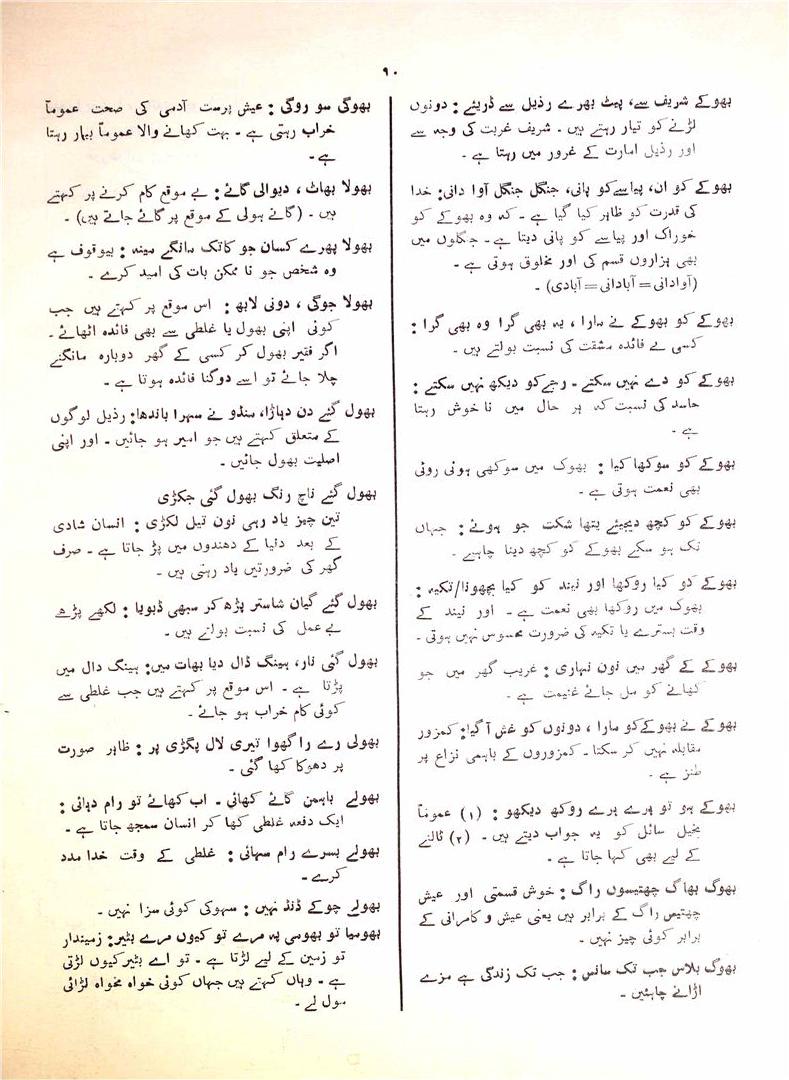 ۹۰
بھوکے شریف سے، پیٹ بھرے رذیل سے ڈریئے : دونوں
لڑنے کو تیار رہتے ہیں ۔ شریف غربت کی وجہ سے
اور رذیل امارت کے غرور میں رہتا ہے ۔
بھوکے کو ان، پیاسے کو پانی، جنگل جنگل آوا دانی: خدا
کی قدرت کو ظاہر کیا گیا ہے ۔ کہ وہ بھوکے کو
خوراک اور پیاسے کو پانی دیتا ہے ۔ جنگلوں میں
بھی ہزاروں قسم کی اور مخلوق ہوتی ہے ۔
(آوادانی = آبادانی = آبادی) ۔
بھوکے کو بھوکے نے مارا ، یہ بھی گرا وہ بھی گرا :
کسی بے فائدہ مشقت کی نسبت بولتے ہیں ۔
بھوکے کو دے نہیں سکتے ۔ رجے کو دیکھ نہیں سکتے :
حاسد کی نسبت کہ ہر حال میں نا خوش رہتا
ہے ۔
بھوکے کو سوکھا کیا : بھوک میں سوکھی ہوئی روٹی
بھی نعمت ہوتی ہے ۔
بھوکے کو کچھ دیجیئے یتھا شکت جو ہوئے : جہاں
تک ہو سکے بھوکے کو کچھ دینا چاہیے ۔
بھوکے کو کیا روکھا اور نیند کو کیا بچھونا/تکیہ :
بھوک میں روکھا بھی نعمت ہے ۔ اور نیند کے
وقت بسترے یا تکیہ کی ضرورت محسوس نہیں ہوتی ۔
بھوکے کے گھر میں نون نہاری : غریب گھر میں جو
کھانے کو مل جائے غنیمت ہے ۔
بھوکے نے بھوکے کو مارا ، دونوں کو غش آ گیا : کمزور
مقابلہ نہیں کر سکتا ۔ کمزوروں کے باہمی نزاع پر
طنز ہے ۔
بھوکے ہو تو ہرے ہرے روکھ دیکھو : (۱) عموماً
بخیل سائل کو یہ جواب دیتے ہیں ۔ (۲) ٹالنے
کے لیے بھی کہا جاتا ہے ۔
بھوگ بھاگ چھتیسوں راگ : خوش قسمتی اور عیش
چھتیس راگ کے برابر ہیں یعنی عیش و کامرانی کے
برابر کوئی چیز نہیں ۔
بھوگ بلاس جب تک سانس : جب تک زندگی ہے مزے
اڑانے چاہئیں ۔
بھوگی سو روگی : عیش پرست آدمی کی صحت عموماً
خراب رہتی ہے ۔ بہت کھانے والا عموماً بیمار رہتا
ہے ۔
بھولا بھاٹ ، دیوالی گائے : بے موقع کام کرنے پر کہتے
ہیں ۔ (گانے ہولی کے موقع پر گائے جاتے ہیں) ۔
بھولا پھرے کسان جو کاتک مانگے مینہ : بیوقوف ہے
وہ شخص جو نا ممکن بات کی امید کرے ۔
بھولا جوگی ، دونی لابھ : اس موقع پر کہتے ہیں جب
کوئی اپنی بھول یا غلطی سے بھی فائدہ اٹھائے ۔
اگر فقیر بھول کر کسی کے گھر دوبارہ مانگنے
چلا جائے تو اسے دوگنا فائدہ ہوتا ہے ۔
بھول گئے دن دہاڑا، منڈو نے سہرا باندھا: رذیل لوگوں
کے متعلق کہتے ہیں جو امیر ہو جائیں ۔ اور اپنی
اصلیت بھول جائیں ۔
بھول گئے ناچ رنگ بھول گئی جکڑی
تین چیز یاد رہی نون تیل لکڑی : انسان شادی
کے بعد دنیا کے دھندوں میں پڑ جاتا ہے ۔ صرف
گھر کی ضرورتیں یاد رہتی ہیں ۔
بھول گئے گیان شاستر پڑھ کر سبھی ڈبویا : لکھے پڑھے
بے عمل کی نسبت بولتے ہیں ۔
بھول گئی نار، ہینگ ڈال دیا بھات میں: ہینگ دال میں
پڑتا ہے ۔ اس موقع پر کہتے ہیں جب غلطی سے
کوئی کام خراب ہو جائے ۔
بھولی رے راگھوا تیری لال پگڑی پر : ظاہر صورت
پر دھوکا کھا گئی ۔
بھولے باہمن گائے کھائی ۔ اب کھائے تو رام دہائی :
ایک دفعہ غلطی کھا کر انسان سمجھ جاتا ہے ۔
بھولے بسرے رام سہائی : غلطی کے وقت خدا مدد
کرے ۔
بھولے چوکے ڈنڈ نہیں : سہوکی کوئی سزا نہیں ۔
بھومیا تو بھومی پہ مرے تو کیوں مرے بٹیر: زمیندار
تو زمین کے لیے لڑتا ہے ۔ تو اے بٹیر کیوں لڑتی
ہے ۔ وہاں کہتے ہیں جہاں کوئی خواہ مخواہ لڑائی
مول لے ۔